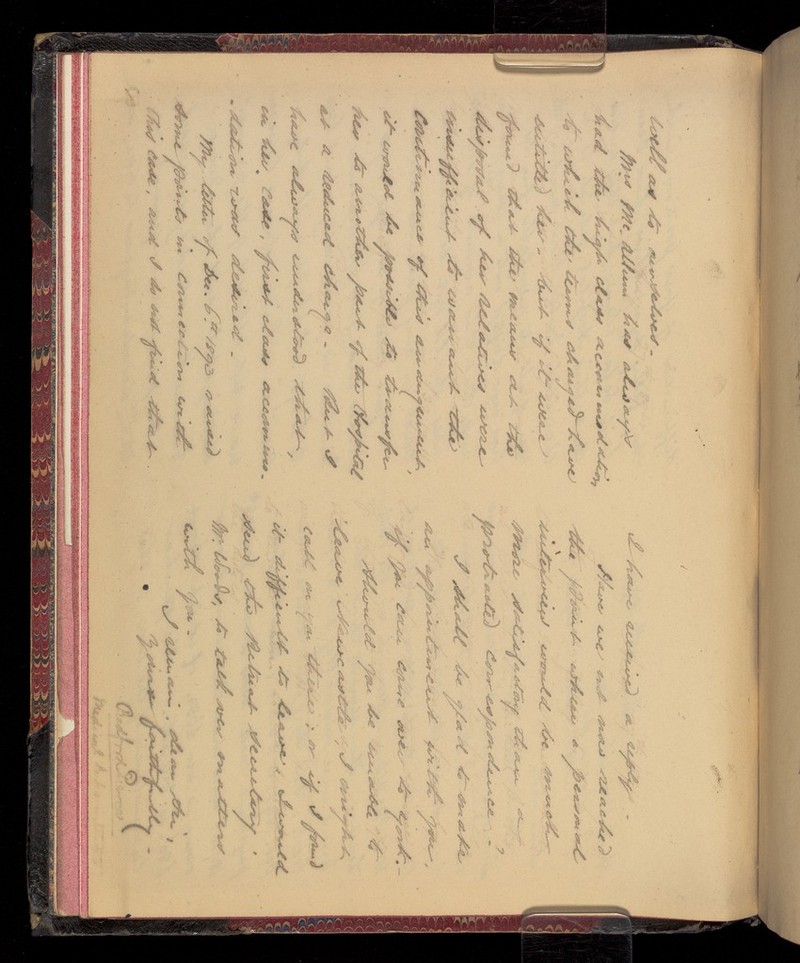 well as to ourselves -
Mrs McAllum has always
had the high class accommodation,
to which the terms charged have
entitled her - but if it were
found that the means at the
disposal of her relatives were
insufficient to warrant the
continuance of this arrangement,
it would be possible to transfer
her to another part of the Hospital
at a reduced charge - But I
have always understood that,
in her case, first class accommo-
-dation was desired -
My letter of Dec. 6th 1893 raised
some points in connection with
this case, and I do not find that
I have received a reply -
Have we not now reached
the point when a personal
interview would be much
more satisfactory than a
protracted correspondence?
I shall be glad to make
an appointment with you,
if you can come over to York. -
Should you be unable to
leave Newcastle, I might
call on you there; or if I found
it difficult to leave, I would
send the Retreat Secretary
Mr. Woods, to talk over matters
with you -
I remain, dear Sir,
Yours faithfully -